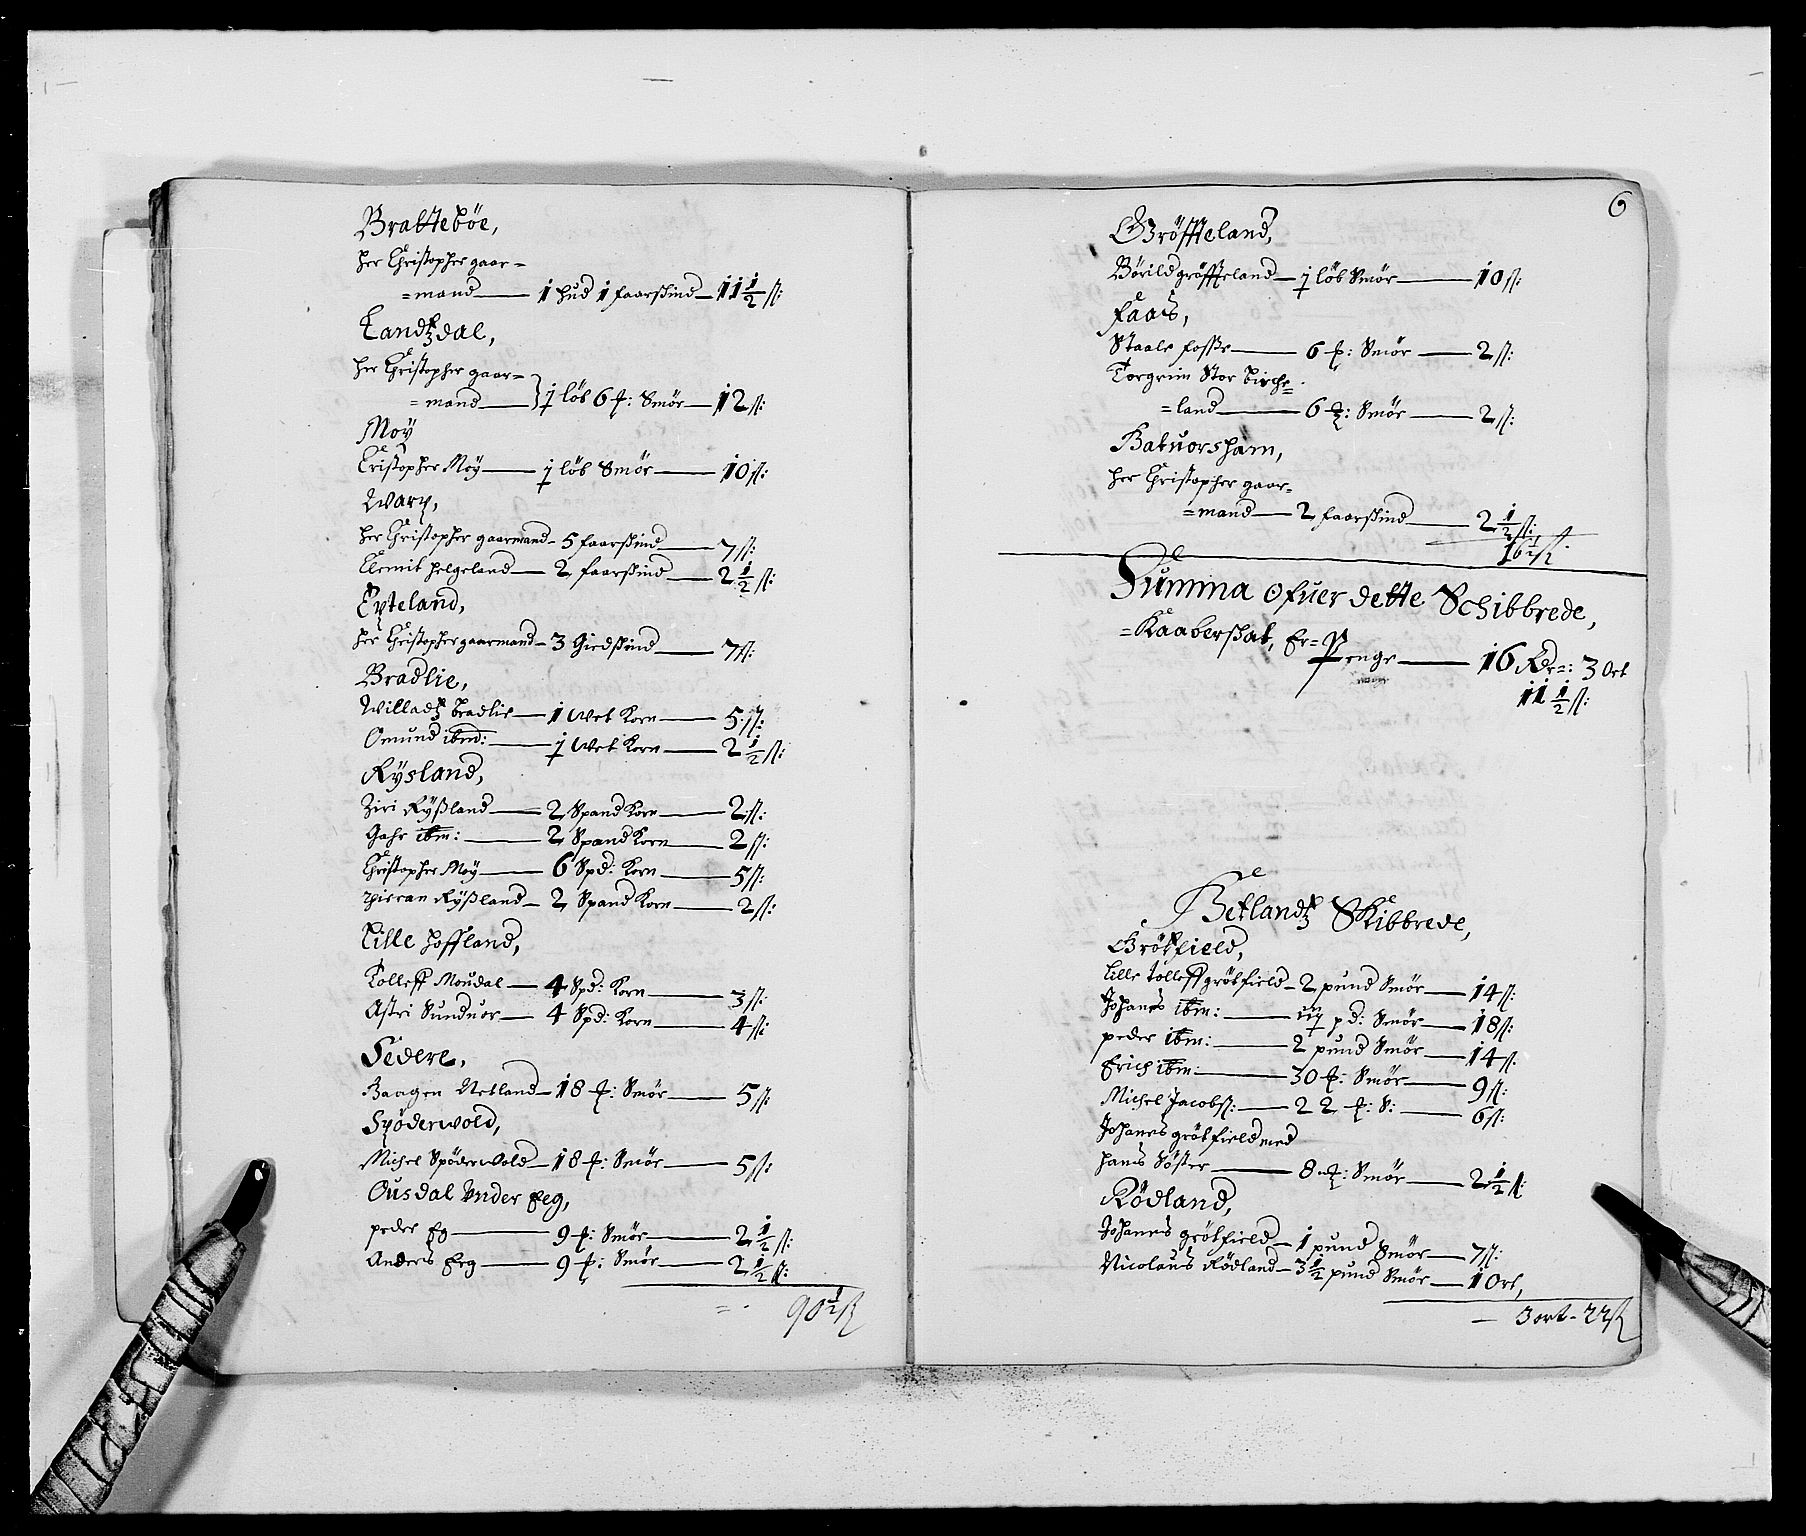 Brattebøe,
her Christopher gaar=
=mand — 1 hud 1 faarskind — 11 1/2 ß:
Landtzdal,
her Christopher gaar=
=mand — j løb 6 ℔: Smør — 12 ß:
Moÿ
Cristopher Moÿ — j løb Smør — 10 ß:
Warp,
her Christopher gaarmand — 5 faarskind — 7 ß:
Clemit helgeland — 2 faarskind — 2 1/2 ß:
Epteland,
her Christopher gaarmand — 3 Giedskind — 7 ß:
Bradlie,
Willadtz bradlie — 1 Wet Korn — 5 ß:
Omund ibm: — j Wet Korn — 2 1/2 ß:
Rÿsland,
Ziri Rÿßland — 2 Spand Korn — 2 ß:
Gahr ibm: — 2 Spand Korn — 2 ß:
Christopher Moÿ — 6 Spd: Korn — 5 ß:
Rÿßland — 2 Spand Korn — 2 ß:
Lille hoffland,
Tolleff Moudal — 4 Spd: Korn — 3 ß:
Astri Sunduor — 4 Spd: Korn — 4 ß:
Sedere,
Baagen Netland — 18 ℔: Smør — 5 ß:
Spøderwold,
Michel Spøderwold — 18 ℔: Smør — 5 ß:
Ousdal Vnder Eeg,
peder Eg — 9 ℔: Smør — 2 1/2 ß:
Anders Eeg — 9 ℔: Smør — 2 1/2 ß:
90 1/2 ß
6
Grøffteland,
Børild grøffteland — j løb Smør — 10 ß:
Faas,
Staale fosse — 6 ℔: Smør — 2 ß:
Torgrim Stor birche=
=land — 6 ℔: Smør — 2 ß:
Batuorsham,
her Christopher gaar=
=mand — 2 faarskind — 2 1/2 ß:
16 1/2 ß
Summa ofuer dette Schibbrede,
=Kaaberskat, Er=
Penge — 16 Rdr: 3 Ort
11 1/2 ß:
Hetlandtz Skibbrede,
Grøtfield,
Lille tolleff grøtfield — 2 pund Smør — 14 ß:
Johanes ibm: — iij pd: Smør — 18 ß:
peder ibm: — 2 pund Smør — 14 ß:
Erich ibm: — 30 ℔: Smør — 9 ß:
Michel Jacobß: — 22 ℔: S: — 6 ß:
Johanes grøtfield med
hans Søster — 8 ℔: Smør — 2 1/2 ß:
Rødland,
Johanes grøtfield — 1 pund Smør — 7 ß:
Nicolaus Rødland — 3 1/2 pund Smør — 1 Ort,
3 ort - 22 ß